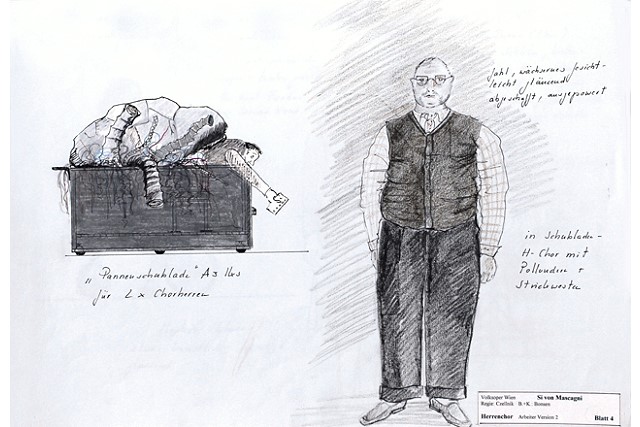 fahl, wächsernes Gesicht -
leicht glänzend
abgeschafft, ausgepowert
"Pannenschublade" A3
für 2 x Chorherren
in Schublade -
H-Chor mit
Pollundern +
Strickwesten
Volksoper Wien Si von Mascagni
Regie: Czellnik B.+K.: Bomsen
Herrenchor Arbeiter Version 2 Blatt 4